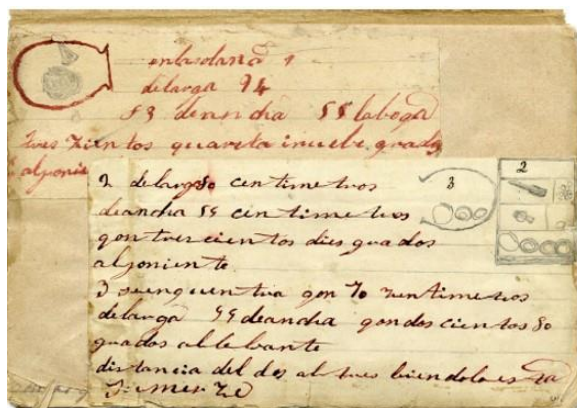 enlasolana 1
delarga 94
53 deancha 55 laboga
tres zientos quareta inuebe grados
alponie
2 delargo 80 centimetros
deancha 55 centimetros
gon trescientos dies grados
alponiente
3 seenquentra gon 70 zentimetros
delarga 55 deancha gondoscientos 80
grados allebante
distancia del dos altres biendolo
3
2